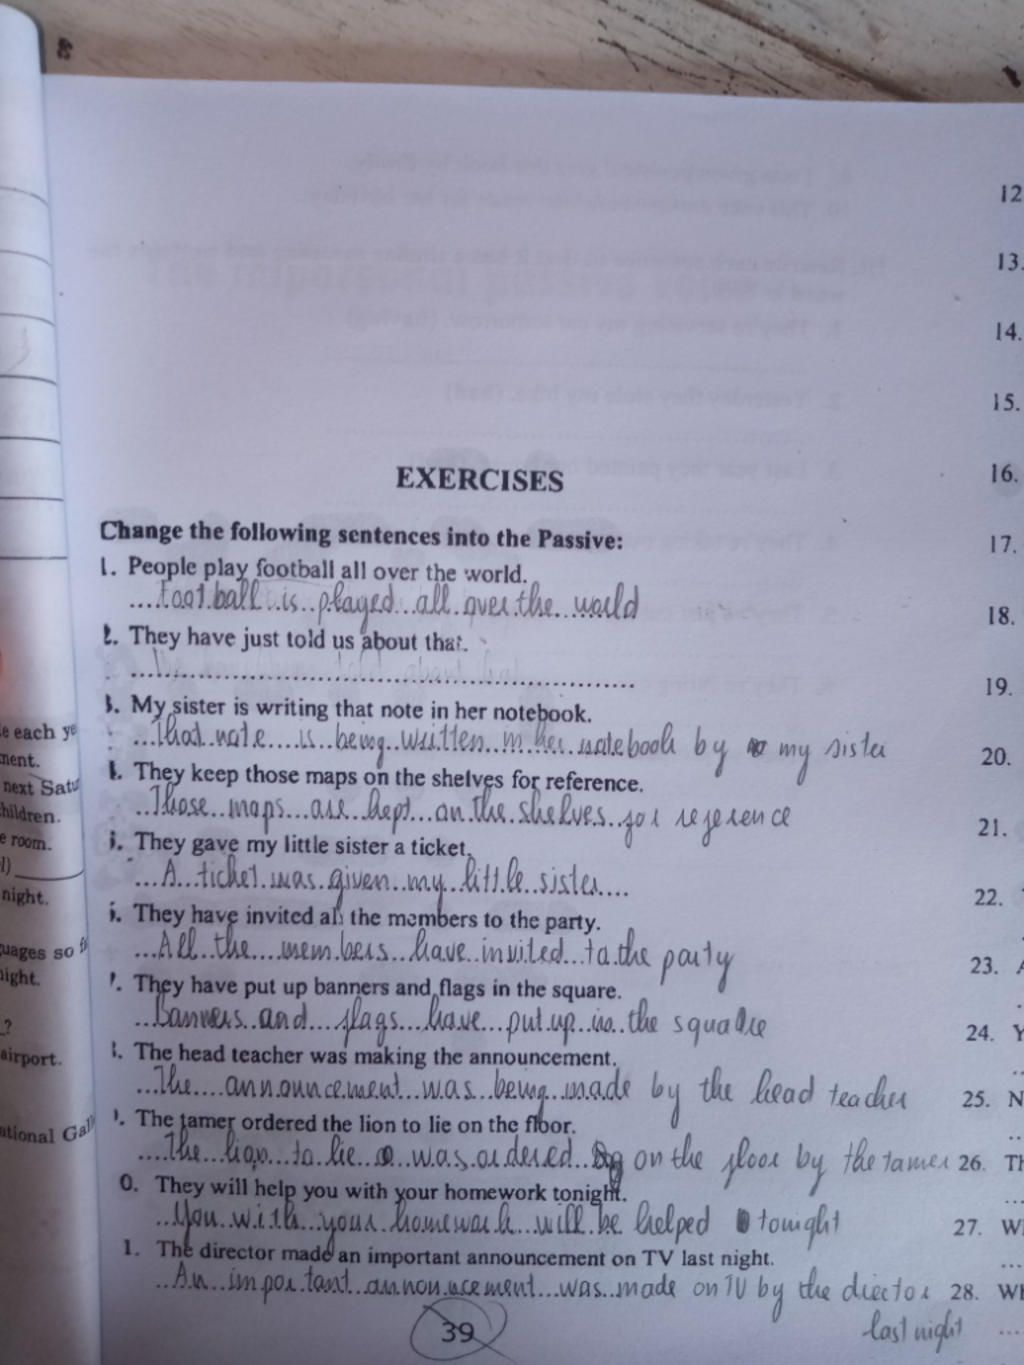 12
13.
14.
15.
16.
17.
18.
19.
20.
21.
22.
23. A
24. Y
25. N
26. Th
27. Wi
28. Wh
e each ye
ment.
next Satu
hildren.
e room.
l)
night.
uages so f
night.
?
airport.
ational Gall
EXERCISES
Change the following sentences into the Passive:
1. People play football all over the world.
Football is played all over the world
2. They have just told us about that.
3. My sister is writing that note in her notebook.
That note is being written in her notebook by my sister
4. They keep those maps on the shelves for reference.
Those maps are kept on the shelves for reference
5. They gave my little sister a ticket.
A ticket was given my little sister
6. They have invited all the members to the party.
All the members have invited to the party
7. They have put up banners and flags in the square.
Banners and flags have put up in the square
8. The head teacher was making the announcement.
The announcement was being made by the head teacher
9. The tamer ordered the lion to lie on the floor.
The lion to lie was ordered on the floor by the tamer
0. They will help you with your homework tonight.
You with your homework will be helped tonight
1. The director made an important announcement on TV last night.
An important announcement was made on TV by the director
last night
39